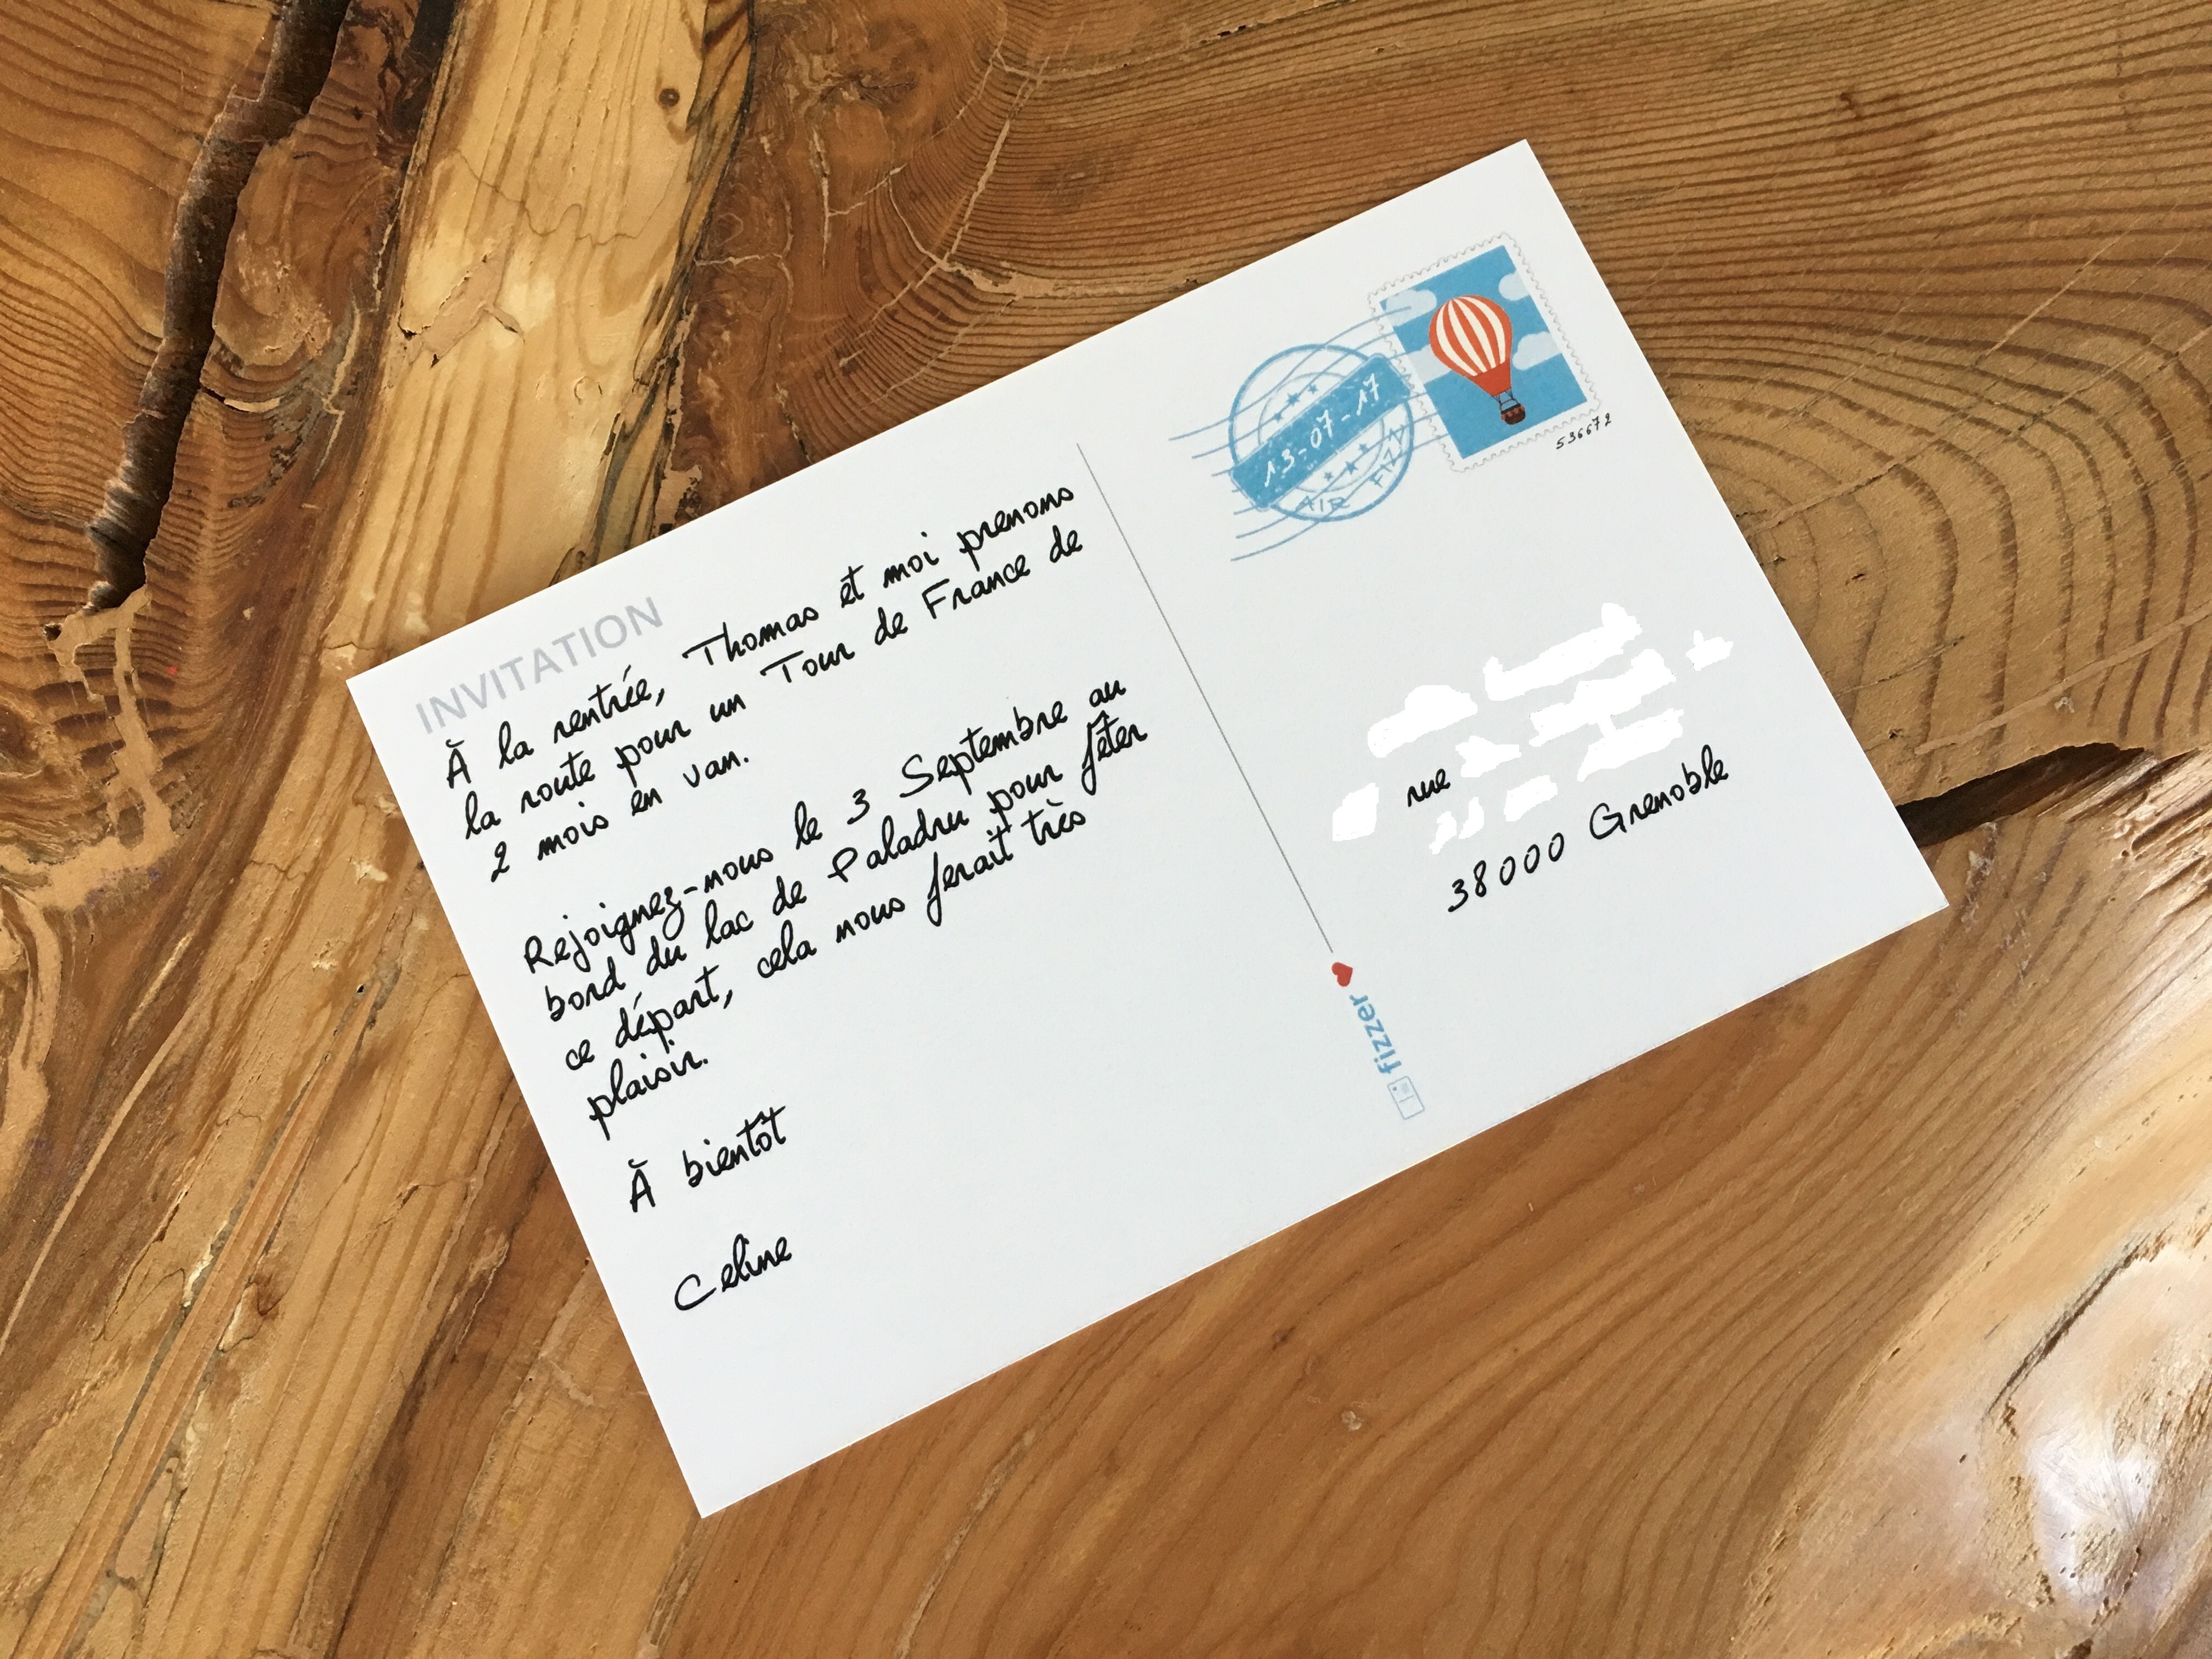 INVITATION
À la rentrée, Thomas et moi prenons
la route pour un Tour de France de
2 mois en van.
Rejoignez-nous le 3 Septembre au
bord du lac de Paladru pour fêter
ce départ, cela nous ferait très
plaisir.
À bientôt
Celine
13-07-17
AIR FIZZ
536672
rue
38000 Grenoble
fizzer